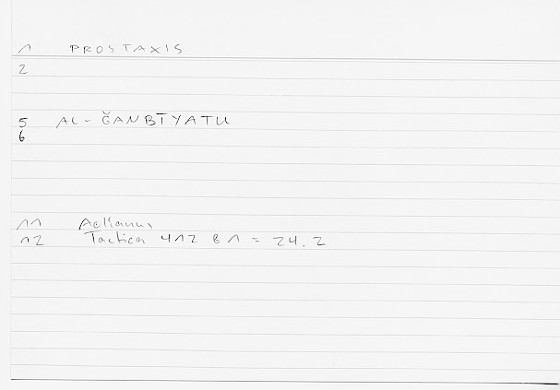 1 PROSTAXIS
2
5 AL-ǦANBĪYATU
6
11 Aelianus
12 Tactica 412 B 1 = 24.2